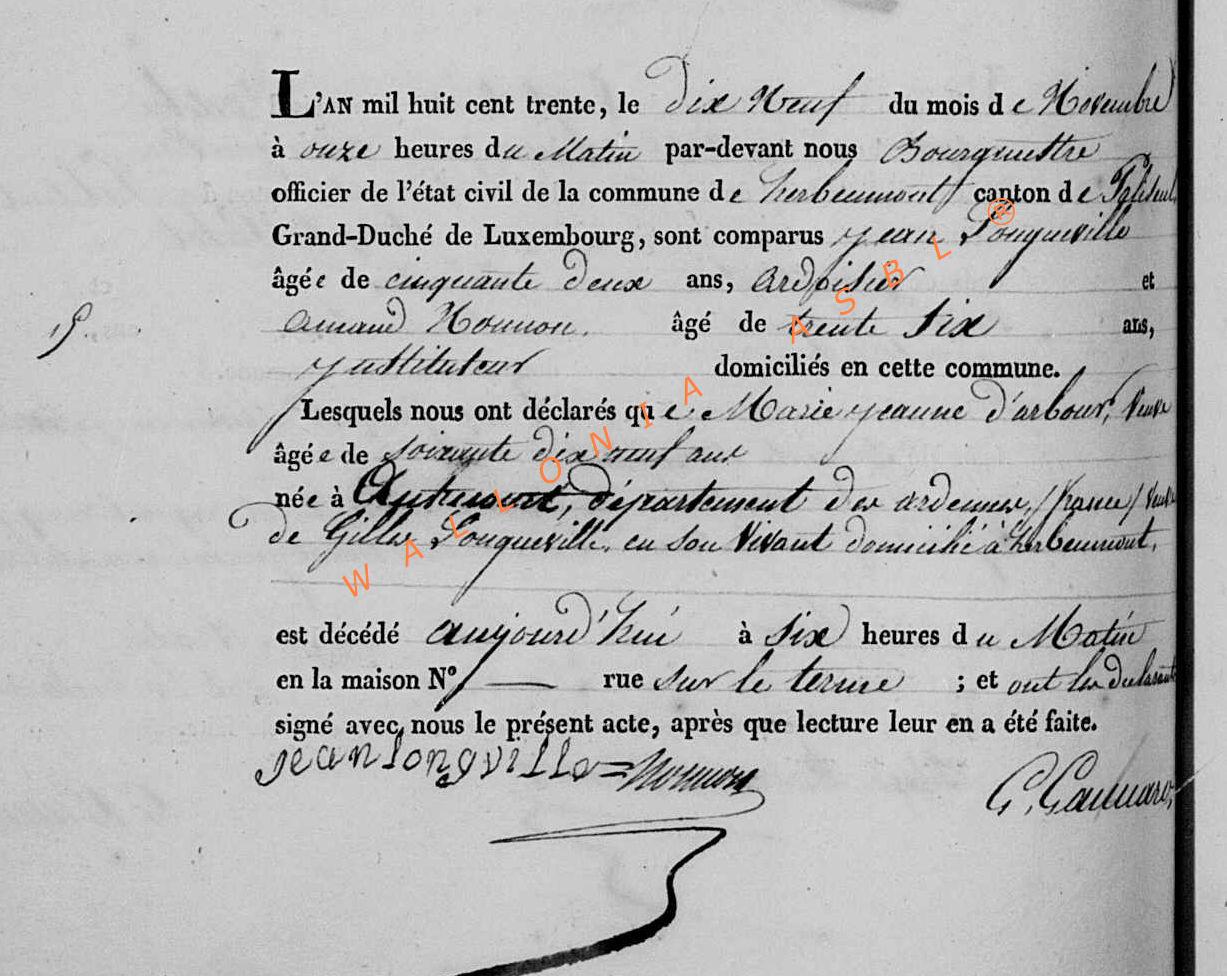 L'AN mil huit cent trente, le dix Neuf du mois de Novembre
à onze heures du Matin par-devant nous Bourguestre
officier de l'état civil de la commune de herbeumont canton de Paliseul
Grand-Duché de Luxembourg, sont comparus jean Longueville
âgée de cinquante deux ans, ardoisier et
amand Nonnon. âgé de trente six ans,
19.
instituteur domiciliés en cette commune.
Lesquels nous ont déclarés que Marie jeanne d'arbour, Veuve
âgée de soixante dix neuf ans
née à département des ardennes, (france) Veuve
de Gilles Longueville, en son Vivant domicilié à herbeumont.
est décédé aujourd'hui à six heures du Matin
en la maison N° — rue sur le terme ; et ont les déclarants
signé avec nous le présent acte, après que lecture leur en a été faite.
jean longville = Nonnon
WALLONIA ASBL ®